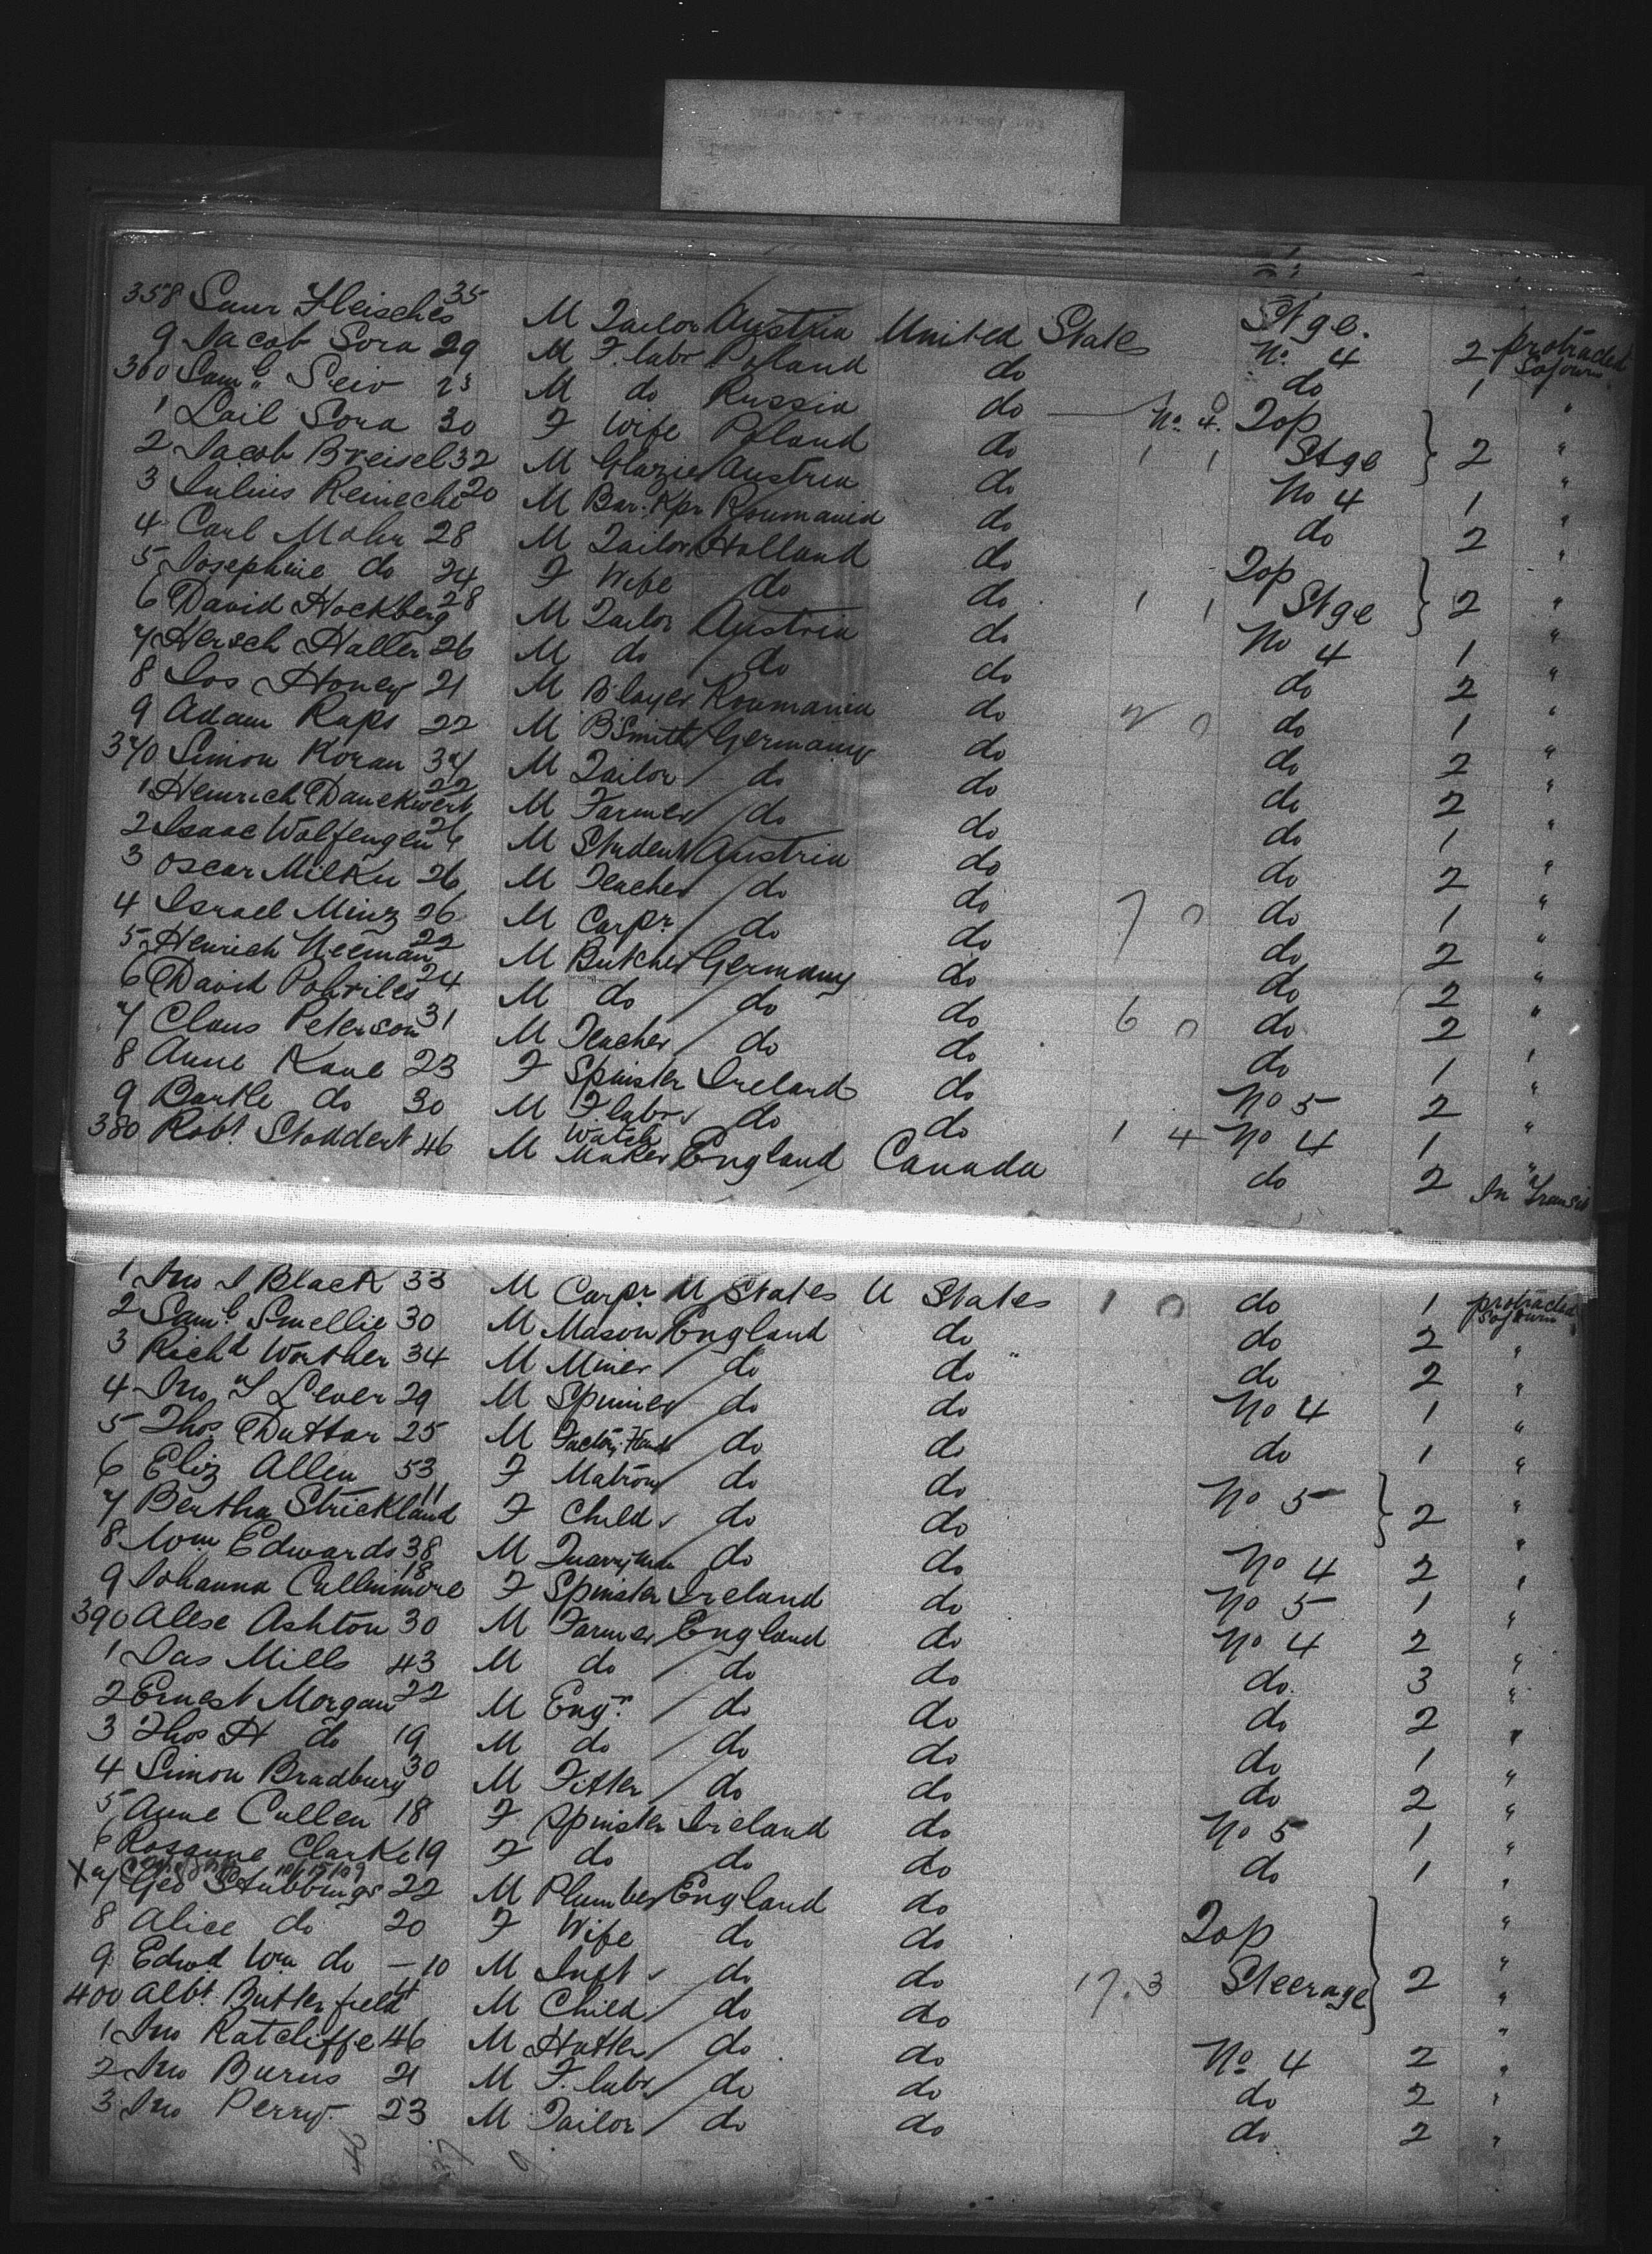 358 Saur Fleisches 35 M Tailor Austria United States Stge. No 4 2 protracted Sojourn
9 Jacob Sora 29 M F. labr Poland do do 1 "
360 Saml Seiv 23 M do Russia do No. 4. Top
1 Lail Sora 30 F Wife Poland do 1 1 Stge } 2 "
2 Jacob Breisel 32 M Glazier Austria do No 4 1 "
3 Julius Reineche 20 M Bar. Kpr Roumania do do 2 "
4 Carl Mohr 28 M Tailor Holland do Top
5 Josephine do 24 F Wife do do 1 1 Stge } 2 "
6 David Hockberg 28 M Tailor Austria do No 4 1 "
7 Hersch Haller 26 M do do do do 2 "
8 Jos Honey 21 M B layer Roumania do do 1 "
9 Adam Raps 22 M B Smith Germany do 2 0 do 2 "
370 Simon Koran 34 M Tailor do do do 2 "
1 Heinrich Danckwert 22 M Farmer do do do 1 "
2 Isaac Wolfengen 26 M Student Austria do do 2 "
3 Oscar Milku 26 M Teacher do do do 1 "
4 Israel Minz 26 M Carpr do do 7 0 do 2 "
5 Henrich Neeman 22 M Butcher Germany do do 2 "
6 David Pohriles 24 M do do do do 2 "
7 Claus Peterson 31 M Teacher do do 6 0 do 1 "
8 Anne Kane 23 F Spinster Ireland do No 5 2 "
9 Bartle do 30 M F labr do do No 4 1 "
380 Robt Stoddert 46 M Watch Maker England Canada 1 4 do 2 In Transit
1 Jno J Black 33 M Carpr U States U States 1 0 do 1 protracted Sojourn
2 Saml Smellie 30 M Mason England do do 2 "
3 Richd Worther 34 M Miner do do do 2 "
4 Jno Y Lever 29 M Spinner do do No 4 1 "
5 Thos Duttar 25 M Factory Hand do do do 1 "
6 Eliz Allen 53 F Matron do do
7 Bertha Strickland 11 F Child do do No 5 } 2 "
8 Wm Edwards 38 M Quarryman do do No 4 2 "
9 Johanna Cullinmore 18 F Spinster Ireland do No 5 1 "
390 Alese Ashton 30 M Farmer England do No 4 2 "
1 Jas Mills 43 M do do do do. 3 "
2 Ernest Morgan 22 M Engr do do do 2 "
3 Thos H do 19 M do do do do 1 "
4 Simon Bradbury 30 M Fitter do do do 2 "
5 Anne Cullen 18 F Spinster Ireland do No 5 1 "
6 Rosanne Clarke 19 F do do do do 1 "
X 7 Geo Stubbings 22 M Plumber England do
8 Alice do 20 F Wife do do Top "
9 Edwd Wm do - 10 M Inft do do 17.3 Steerage } 2 "
400 Albt Butterfield 4 M Child do do "
1 Jno Ratcliffe 46 M Hatter do do No 4 2 "
2 Jno Burns 21 M F. labr do do do 2 "
3 Jno Perry. 23 M Tailor do do do 2 "